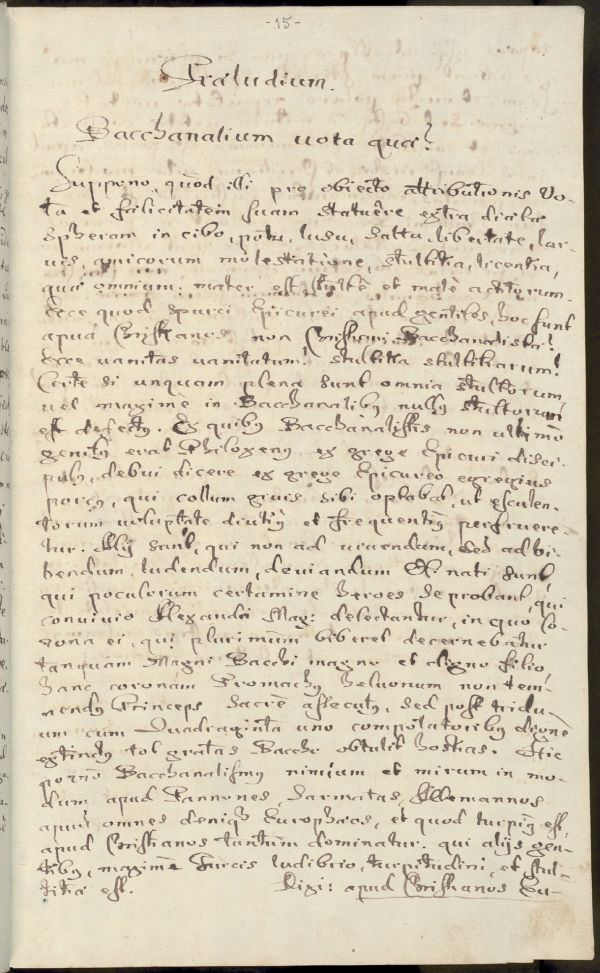 -15-
Præludium.
Bacchanalium vota quæ?
Suppono, quòd illi pro obiecto attributionis vo-
ta et felicitatem suam statuêre extra dicibæ
Spheram in cibo, potu, lusu, saltu, libertate, lar-
uis, amicorum molestatione, stultitia, licentia,
quæ omnium mater est stultè et malè actorum.
Ecce quod spurci Epicurei apud gentiles, hoc sunt
apud Christianos non Christiani Bacchanalistæ!
Ecce uanitas uanitatum! stultitia stultitiarum!
Certè si unquam plena sunt omnia stultorum
uel maximè in Bacchanalibq nullq stultorum
est defectq. Ex quibq Bacchanalistis non ultimo
genitq erat Philoxenq ex grege Epicuri disci-
pulq, debui dicere ex grege Epicureo egregius
porcq, qui collum gruis sibi optabat, ut esculen-
torum uoluptate diutiq et frequentiq perfruere-
tur. Alij sunt, qui non ad uiuendum, sed ad bi-
bendum, ludendum, deuiandum nati sunt
qui poculorum certamine heroes se probant, qui
conuiuio Alexandri Mag: delectantur, in quo Co-
rona ei, qui plurimùm biberet decernebatur
tanquam Magni Bacchi magno et digno filio,
hanc coronam Promachq heluonum non tem-
nendq Princeps sacrè assecutq, sed post tridu-
um cum Quadraginta uno compotatoribq dignè
extinctq tot gratas Baccho obtulit hostias. Hic
porrò Bacchanalismq nimium et mirum in mo-
dum apud Pannones, Sarmatas, Allemannos
apud omnes deniq Europhæos, et quod turpiq est,
apud Christianos tantùm dominatur. qui alijs gen-
tibq, maximè Turcis ludibrio, turpitudini, et stul-
titiæ est. Dixi: apud Christianos Eu-